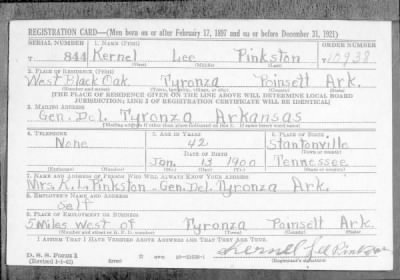 REGISTRATION CARD—(Men born on or after February 17, 1897 and on or before December 31, 1921)
SERIAL NUMBER 1. NAME (Print) ORDER NUMBER
T 844 Kernel Lee Pinkston T 10938
(First) (Middle) (Last)
2. PLACE OF RESIDENCE (Print)
West Black Oak Tyronza Poinsett Ark.
(Number and street) (Town, township, village, or city) (County) (State)
[THE PLACE OF RESIDENCE GIVEN ON THE LINE ABOVE WILL DETERMINE LOCAL BOARD
JURISDICTION; LINE 2 OF REGISTRATION CERTIFICATE WILL BE IDENTICAL]
3. MAILING ADDRESS
Gen. Del. Tyronza Arkansas
[Mailing address if other than place indicated on line 2. If same insert word same]
4. TELEPHONE 5. AGE IN YEARS 6. PLACE OF BIRTH
None 42 Stantonville
DATE OF BIRTH
Jan. 13 1900 Tennessee
7. NAME AND ADDRESS OF PERSON WHO WILL ALWAYS KNOW YOUR ADDRESS
Mrs. K. L. Pinkston - Gen. Del. Tyronza Ark.
8. EMPLOYER'S NAME AND ADDRESS
Self
9. PLACE OF EMPLOYMENT OR BUSINESS
5 Miles West of Tyronza Poinsett Ark.
(Number and street or R. F. D. number) (Town) (County) (State)
I AFFIRM THAT I HAVE VERIFIED ABOVE ANSWERS AND THAT THEY ARE TRUE.
D. S. S. Form 1
(over) Kernel Lee Pinkston
(Registrant's signature)